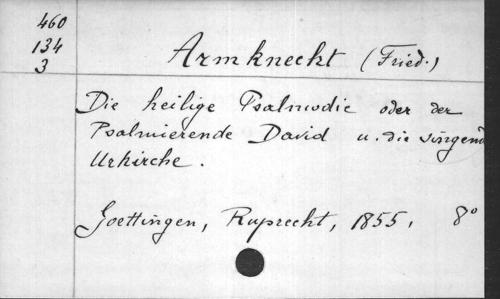 460
134
3
Armknecht (Fried.)
Die heilige Psalmodie oder der
Psalmierende David u. die singend
Urkirche.
Goettingen, Ruprecht, 1855, 8°